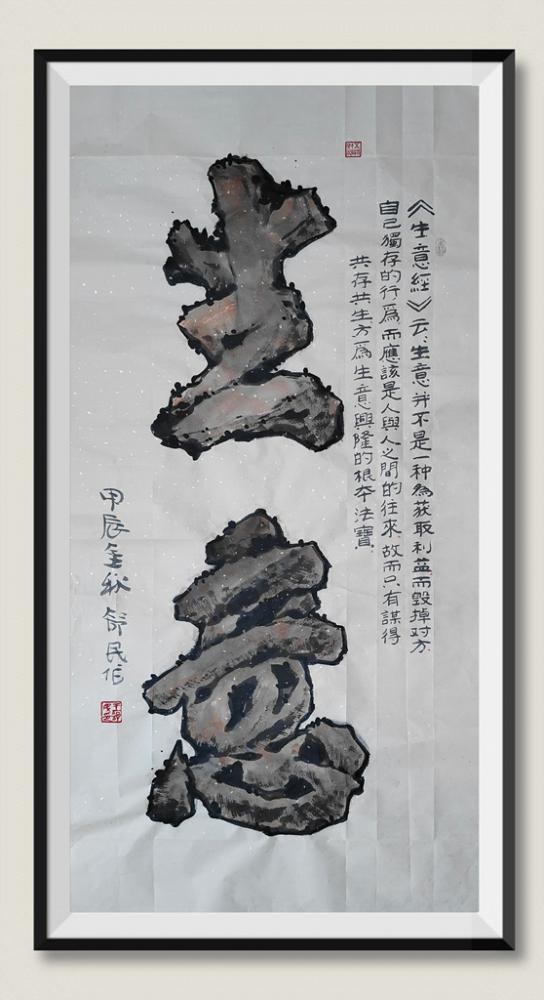 《生意經》云、生意并不是一种為获取利益而毀掉对方
自己獨存的行爲、而應該是人與人之間的往來、故而只有謀得
共存共生方爲生意興隆的根本法寶、
生意
甲辰金秋舒民作